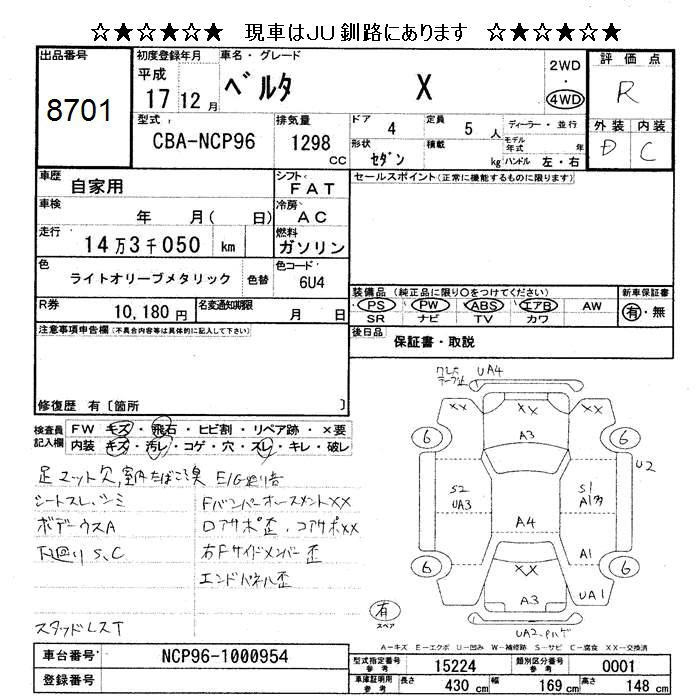 ☆★☆★☆★ 現車はJU釧路にあります ☆★☆★☆★
出品番号
8701
初度登録年月
平成
17 12 月
車名・グレード
ベルタ X
2WD
・
4WD
評価点
R
外装 内装
D C
型式
CBA-NCP96
排気量
1298
cc
ドア 4
定員 5 人
ディーラー・並行
形状 セダン
積載 kg
モデル年式 年
ハンドル 左・右
車歴 自家用
シフト FAT
車検 年 月( 日)
冷房 AC
走行 14万3千050 km
燃料 ガソリン
色 ライトオリーブメタリック
色替
色コード 6U4
R券 10,180円
名変通知期限 月 日
セールスポイント(正常に機能するものに限ります)
装備品 (純正品に限り○をつけてください)
PS PW ABS エアB AW
SR ナビ TV カワ
新車保証書
有・無
後日品 保証書・取説
注意事項申告欄(不具合内容等は具体的に記入して下さい)
修復歴 有〔箇所 〕
検査員記入欄
FW キズ・飛石・ヒビ割・リペア跡・×要
内装 キズ・汚レ・コゲ・穴・スレ・キレ・破レ
足マット欠,室内たばこ臭 E/G
シートスレ,シミ
ボデーウスA
下廻りS,C
スタッドレスT
右Fサイドメンバー歪
エンドパネル歪
UA4
XX XX XX
A3
6 6
U2
S2
UA3
S1
A4
A1
6 6
XX
A3
UA1
UA2
有
スペア
A−キズ E−エクボ U−凹み W−補修跡 S−サビ C−腐食 XX−交換済
車台番号 NCP96-1000954
登録番号
型式指定番号 参考 15224
類別区分番号 参考 0001
車庫証明用 参考
長さ 430 cm
幅 169 cm
高さ 148 cm